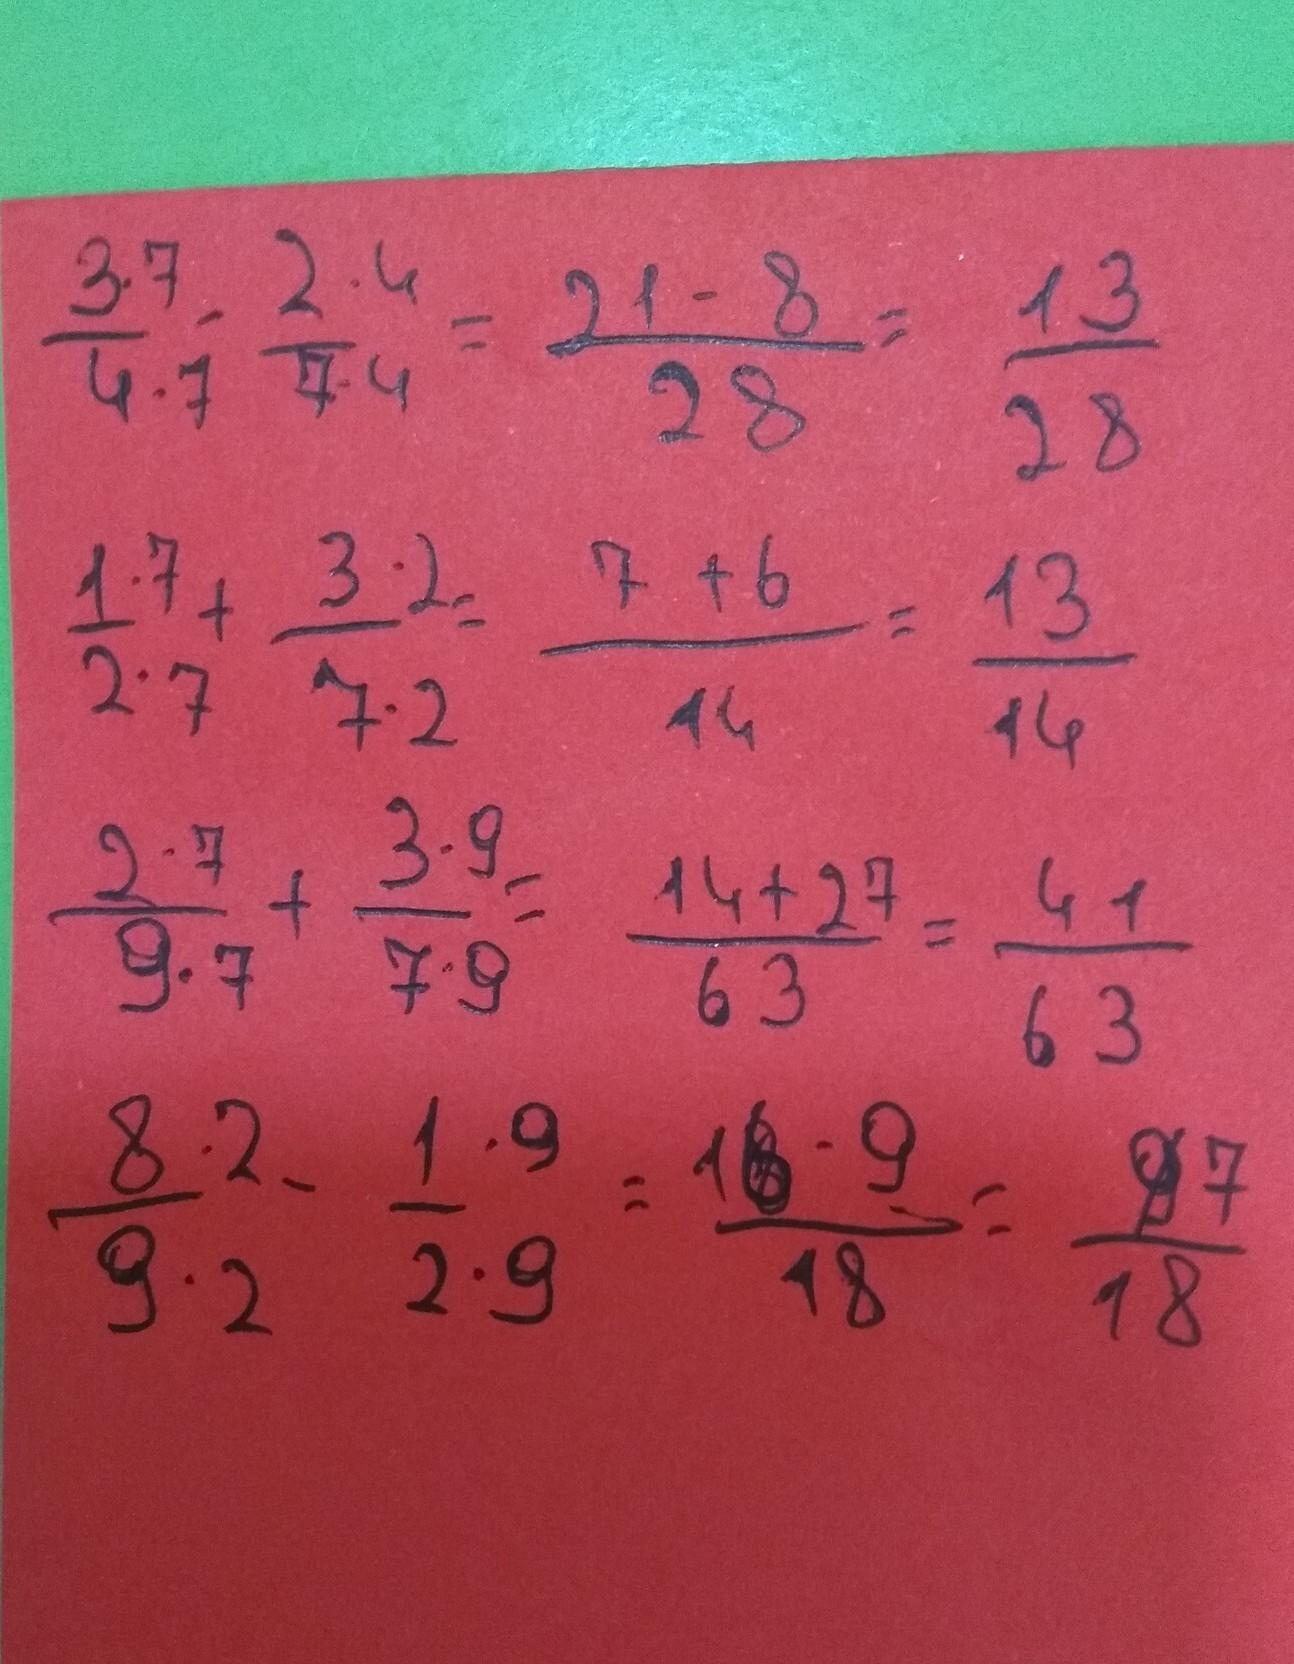 3·7/4·7 - 2·4/7·4 = 21-8/28 = 13/28
1·7/2·7 + 3·2/7·2 = 7+6/14 = 13/14
2·7/9·7 + 3·9/7·9 = 14+27/63 = 41/63
8·2/9·2 - 1·9/2·9 = 16-9/18 = 7/18